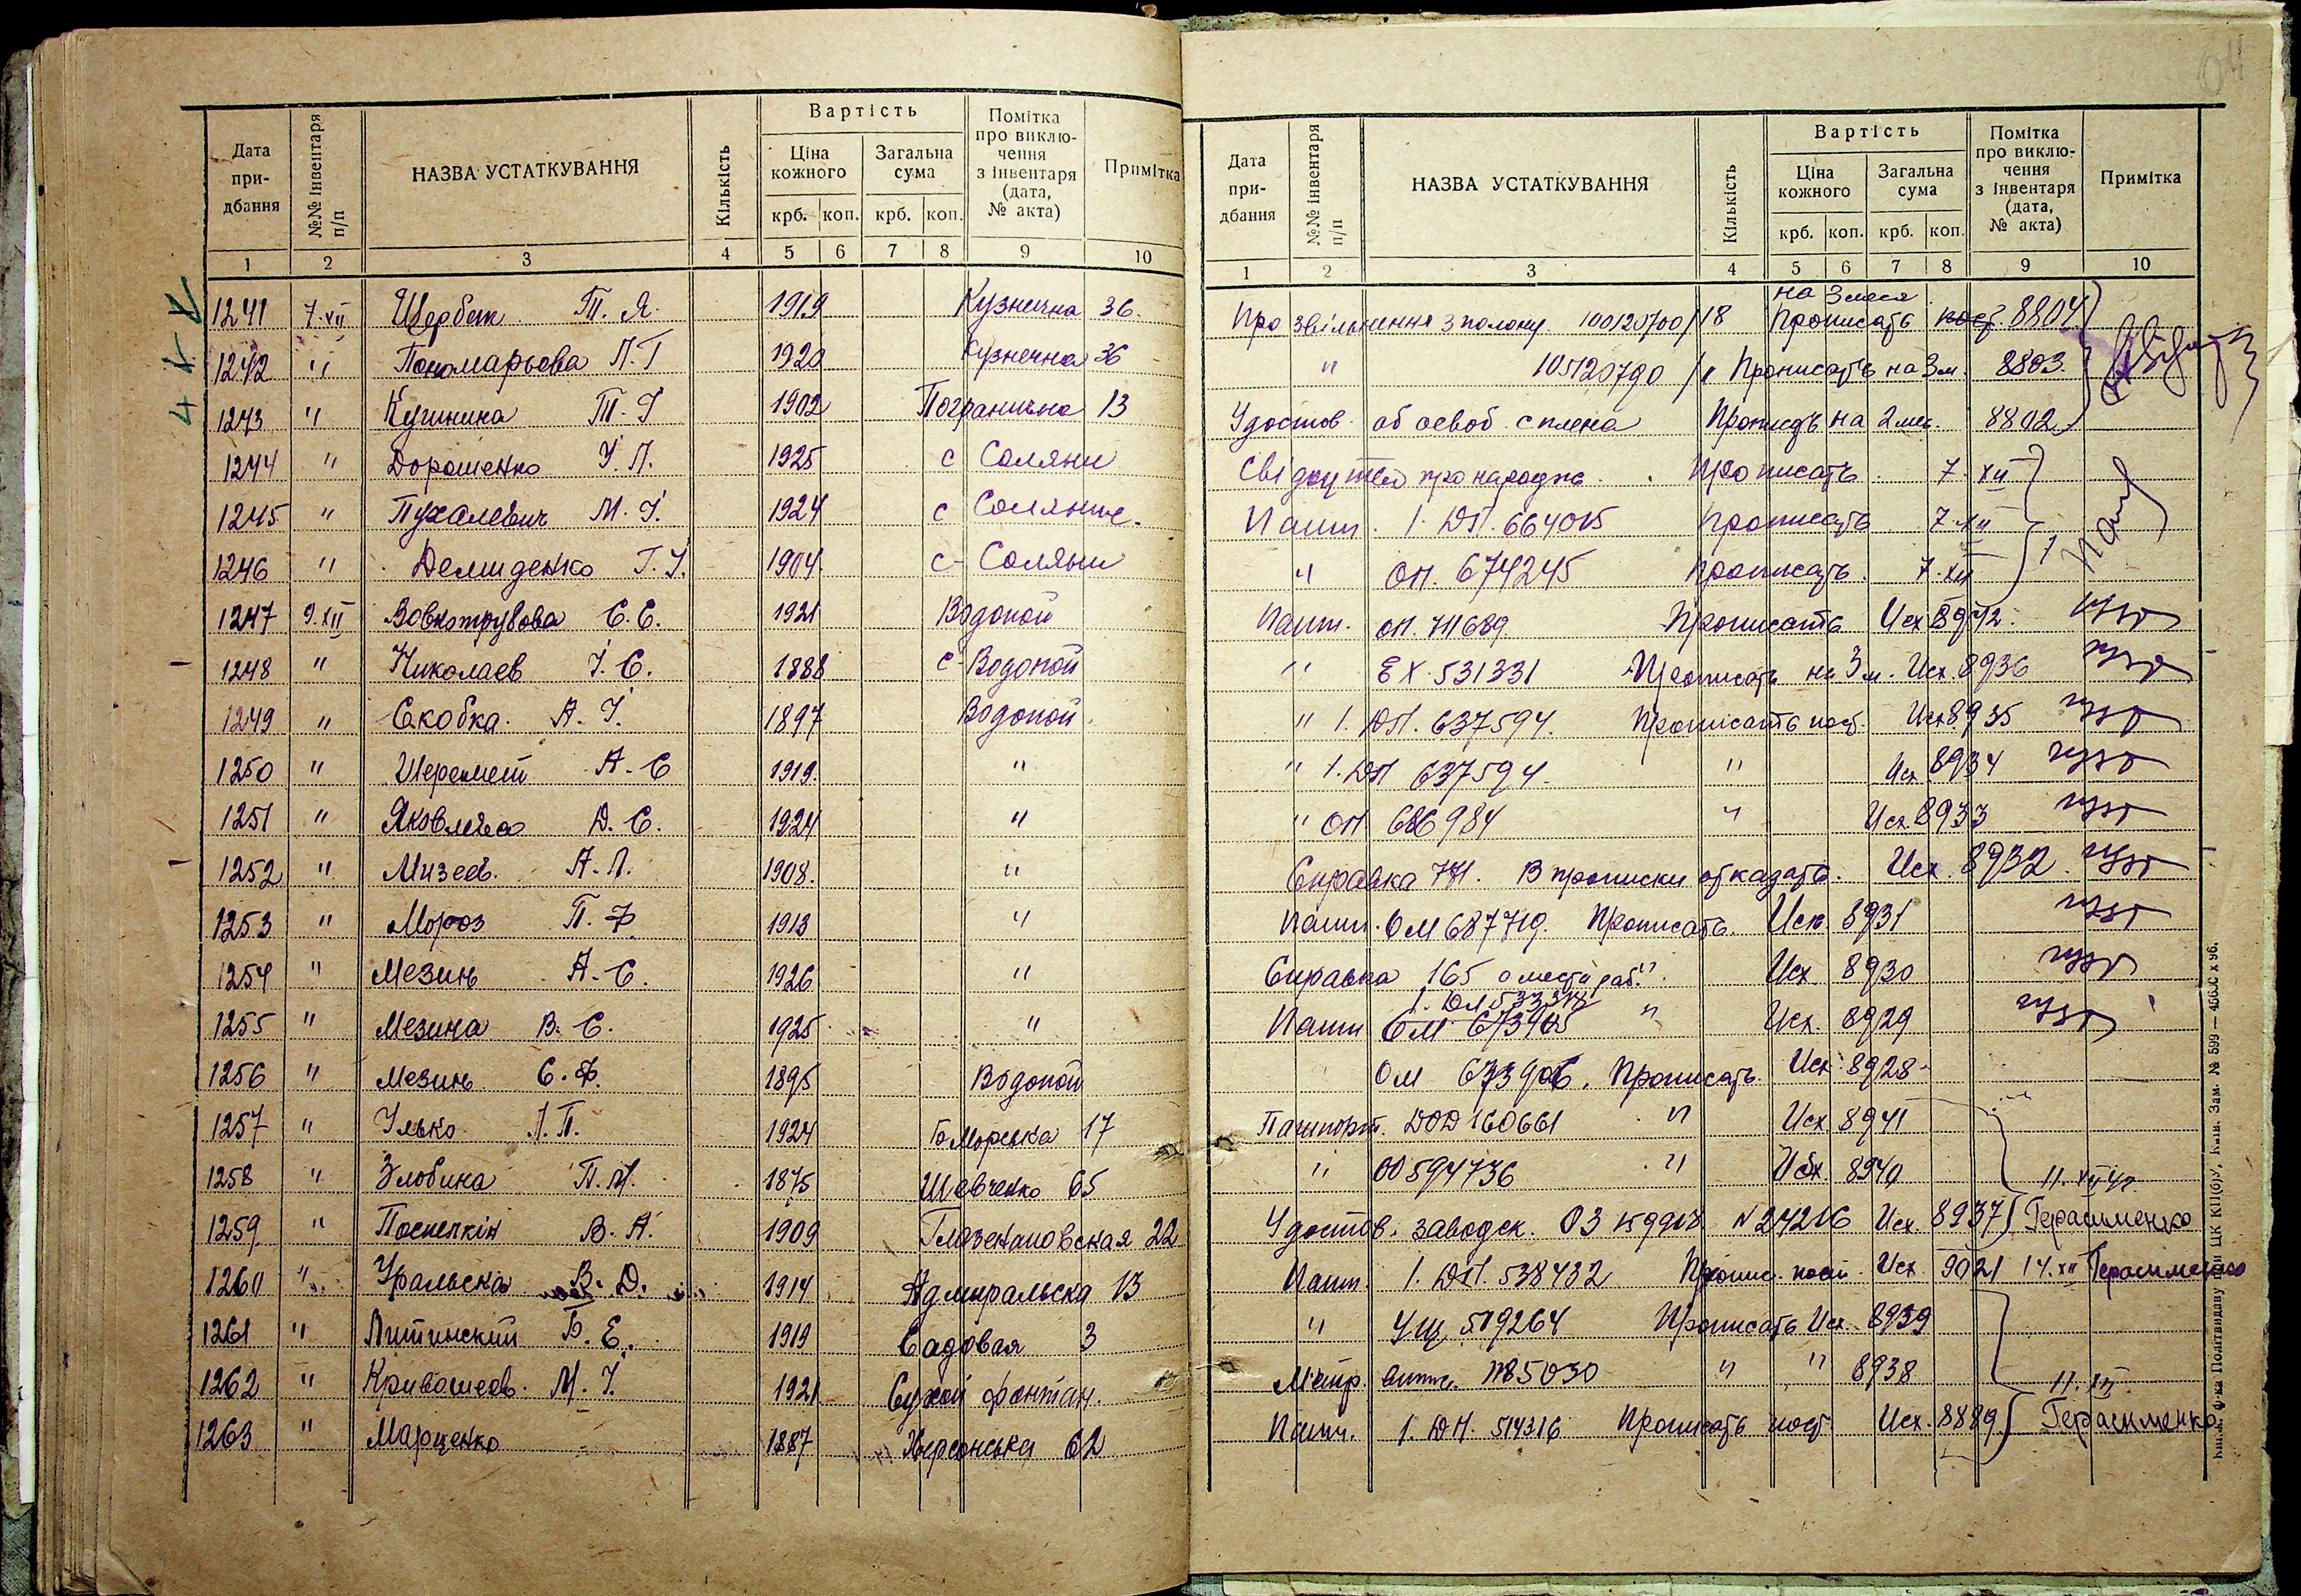 Дата при-дбання №№ інвентаря п/п НАЗВА УСТАТКУВАННЯ Кількість Вартість Ціна кожного крб. коп. Загальна сума крб. коп. Помітка про виклю-чення з інвентаря (дата, № акта) Примітка
1 2 3 4 5 6 7 8 9 10
1241 7.XII Щербак П. Я. 1919 Кузнична 36.
1242 " Пономарьова Л. Г 1920 Кузнечна 36
1243 " Кушнина Т. І 1902 Погранична 13
1244 " Дорошенко І. Л. 1925 с Соляни
1245 " Пухалевич М. І. 1924 с Соляние.
1246 " Демиденко Г. І. 1904 с- Соляни
1247 9.XII Вовкотрубова Є. Є. 1921 Водопой
1248 " Николаев І. С. 1888 с- Водопой
1249 " Скобка. А. І. 1897 Водопой
1250 " Шеремет А. С 1919. "
1251 " Яковлева Д. С. 1924 "
1252 " Мизев. А. Л. 1908. "
1253 " Мороз П. Ф 1913 "
1254 " Мезинь А. С. 1926 "
1255 " Мезина В. С. 1925 "
1256 " Мезинь С. Ф. 1895 Водопой
1257 " Ілько Л. П. 1924 Б Морська 17
1258 " Злобина П. М. 1875 Шевченко 65
1259 " Поспелкін В. А. 1909 Глазенаповская 22
1260 " Уральска В. Д. 1914 Адмиральска 13
1261 " Литинский Б. Е. 1919 Садовая 3
1262 " Кривошеев. М. І. 1921 Сухой фонтан.
1263 " Марценко 1887 Херсонська 62
Дата при-дбання №№ інвентаря п/п НАЗВА УСТАТКУВАННЯ Кількість Вартість Ціна кожного крб. коп. Загальна сума крб. коп. Помітка про виклю-чення з інвентаря (дата, № акта) Примітка
1 2 3 4 5 6 7 8 9 10
на 3 меся
Про звільнення з полону 100120700/18 Прописать 8804
" 105120790 /" Прописать на 3 м. 8803.
Удостов. об освоб. с плена Прописать на 2 мес. 8802
Свідоцтво про народж. Прописать. 7. XII
Пашп. 1. ДП. 664015 прописать 7. XII
" ОП. 674245 прописать. 7. XII
Пашп. ОП. 711689 Прописать Исх 8942.
" ЕХ. 531331 Прописать на 3 м. Исх. 8936
" 1. ДП. 637594. Прописать пост. Исх 8935
" 1. ДП 637594. " Исх 8934
" ОП 686984 " Исх. 8933
Справка 771. В прописки отказать. Исх. 8932.
Пашп. ОМ 687719. Прописать. Исх. 8931
Справка 165 о месте раб. " Исх. 8930
Пашп ОМ 673405 " Исх. 8929
ОМ 673906. Прописать Исх. 8928
Пашпорт. DOD 160661 " Исх 8941
" OO 594736 " Исх. 8940 11. XII
Удостов. заводск. ОЗ № 24216 Исх. 8937 Герасименко
Пашп. 1. ДП. 538432 Пропис. пост. Исх. 9021 14. XII Герасименко
" УЩ 519264 Прописать Исх. 8939
Метр. витяг. №85030 " " 8938 11. XII
Пашп. 1. ДП. 514316 Прописать пост. Исх. 8889 Герасименко